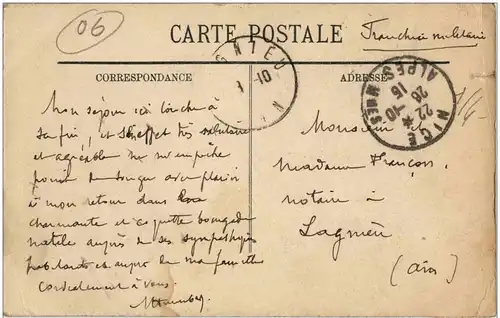 06
CARTE POSTALE
Franchise militaire
CORRESPONDANCE
ADRESSE
NICE
ALPES MMES
22-10
15
Mon séjour ici touche à
sa fin, et effet très salutaire
et agréable ne m'empêche
point de songer avec plaisir
à mon retour dans
charmante et coquette bourgade
natale auprès de ses sympathiques
habitants et auprès de ma famille
Cordialement à vous.
Monsieur et
Madame François
notaire à
Lagnieu
(Ain)